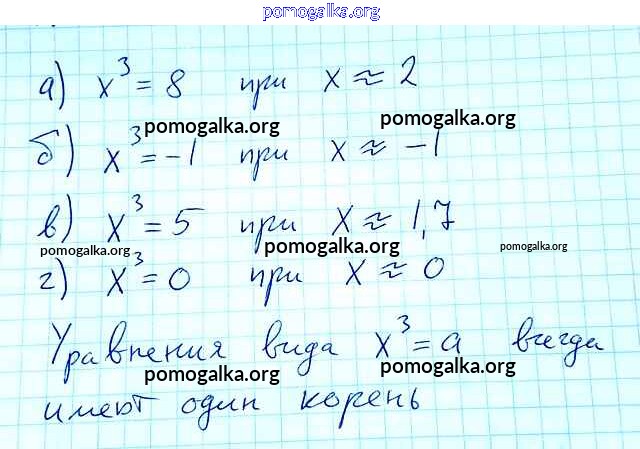 pomogalka.org
а) x³ = 8 при x ≈ 2
pomogalka.org pomogalka.org
б) x³ = -1 при x ≈ -1
в) x³ = 5 при x ≈ 1,7
pomogalka.org pomogalka.org pomogalka.org
г) x³ = 0 при x ≈ 0
Уравнения вида x³ = a всегда
pomogalka.org pomogalka.org
имеют один корень